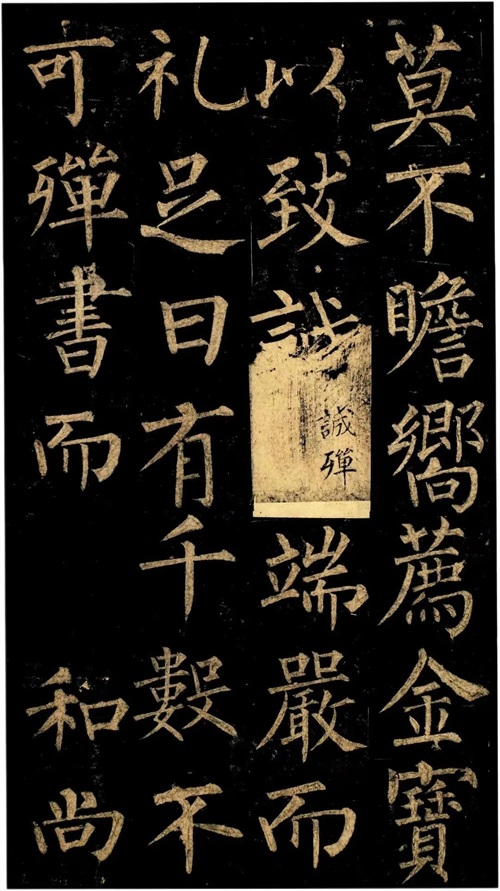 莫不瞻嚮薦金寶
以致誠端嚴而
誠殫
礼足日有千數不
可殫書而 和尚